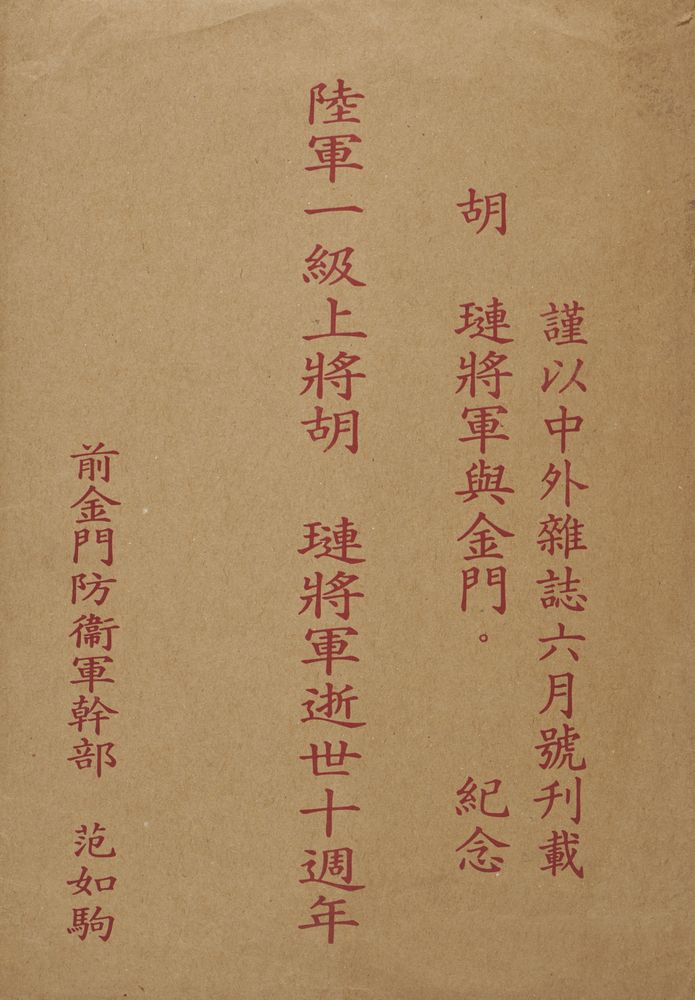 謹以中外雜誌六月號刊載
胡 璉將軍與金門。 紀念
陸軍一級上將胡 璉將軍逝世十週年
前金門防衞軍幹部 范如駒